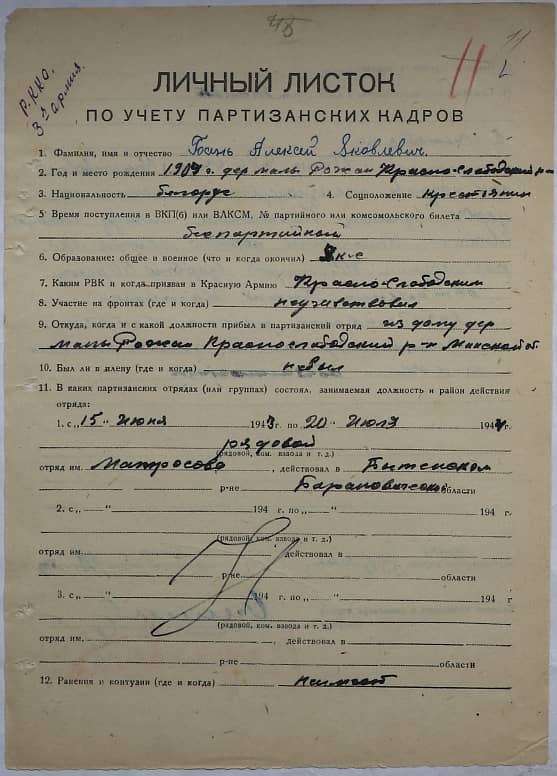 РККА.
3я армия.
ЛИЧНЫЙ ЛИСТОК
ПО УЧЕТУ ПАРТИЗАНСКИХ КАДРОВ
1. Фамилия, имя и отчество Алексей Яковлевич.
2. Год и место рождения дер малы Рожан Красно-Слободский р-н
3. Национальность белорус 4. Соцположение крестьянин
5. Время поступления в ВКП(б) или ВЛКСМ, № партийного или комсомольского билета
беспартийной
6. Образование: общее и военное (что и когда окончил)
7. Каким РВК и когда призван в Красную Армию Красно-Слободским
8. Участие на фронтах (где и когда) неучаствовал
9. Откуда, когда и с какой должности прибыл в партизанский отряд из дому дер
малы Рожан Краснослабодский р-н Минской об.
10. Был ли в плену (где и когда) небыл
11. В каких партизанских отрядах (или группах) состоял, занимаемая должность и район действия
отряда:
1. с „15" Июня 1943 г. по 20 Июля 1944 г.
рядовой
(рядовой, ком. взвода и т. д.)
отряд им. Матросова, действовал в Бытенском
р-не Барановической области
2. с „ " 194 г. по „ " 194 г.
(рядовой, ком. взвода и т. д.)
отряд им. действовал в
р-не области
3. с „ " 194 г. по „ " 194 г
(рядовой, ком. взвода и т. д.)
отряд им. , действовал в
р-не области
12. Ранения и контузии (где и когда) неимеет